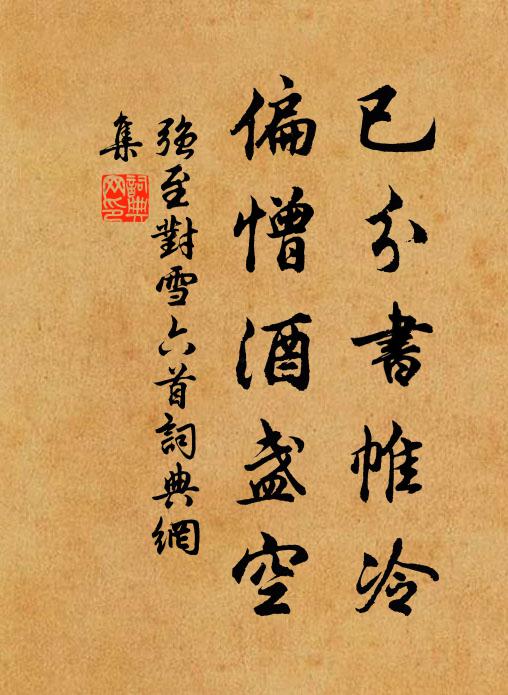 已分書帷冷
偏憎酒盏空
強至對雪六首詞典網
集
詞典
网印